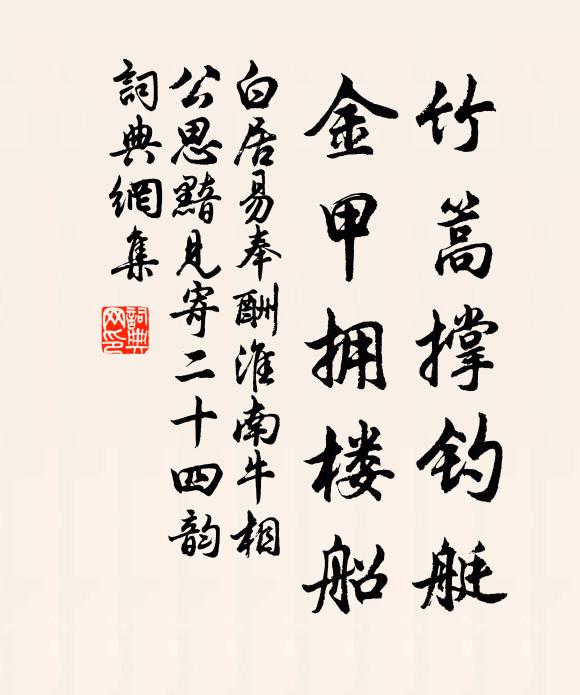 竹篙撑钓艇
金甲拥楼船
白居易奉酬淮南牛相
公思黯见寄二十四韵
詞典網集
詞典
网印